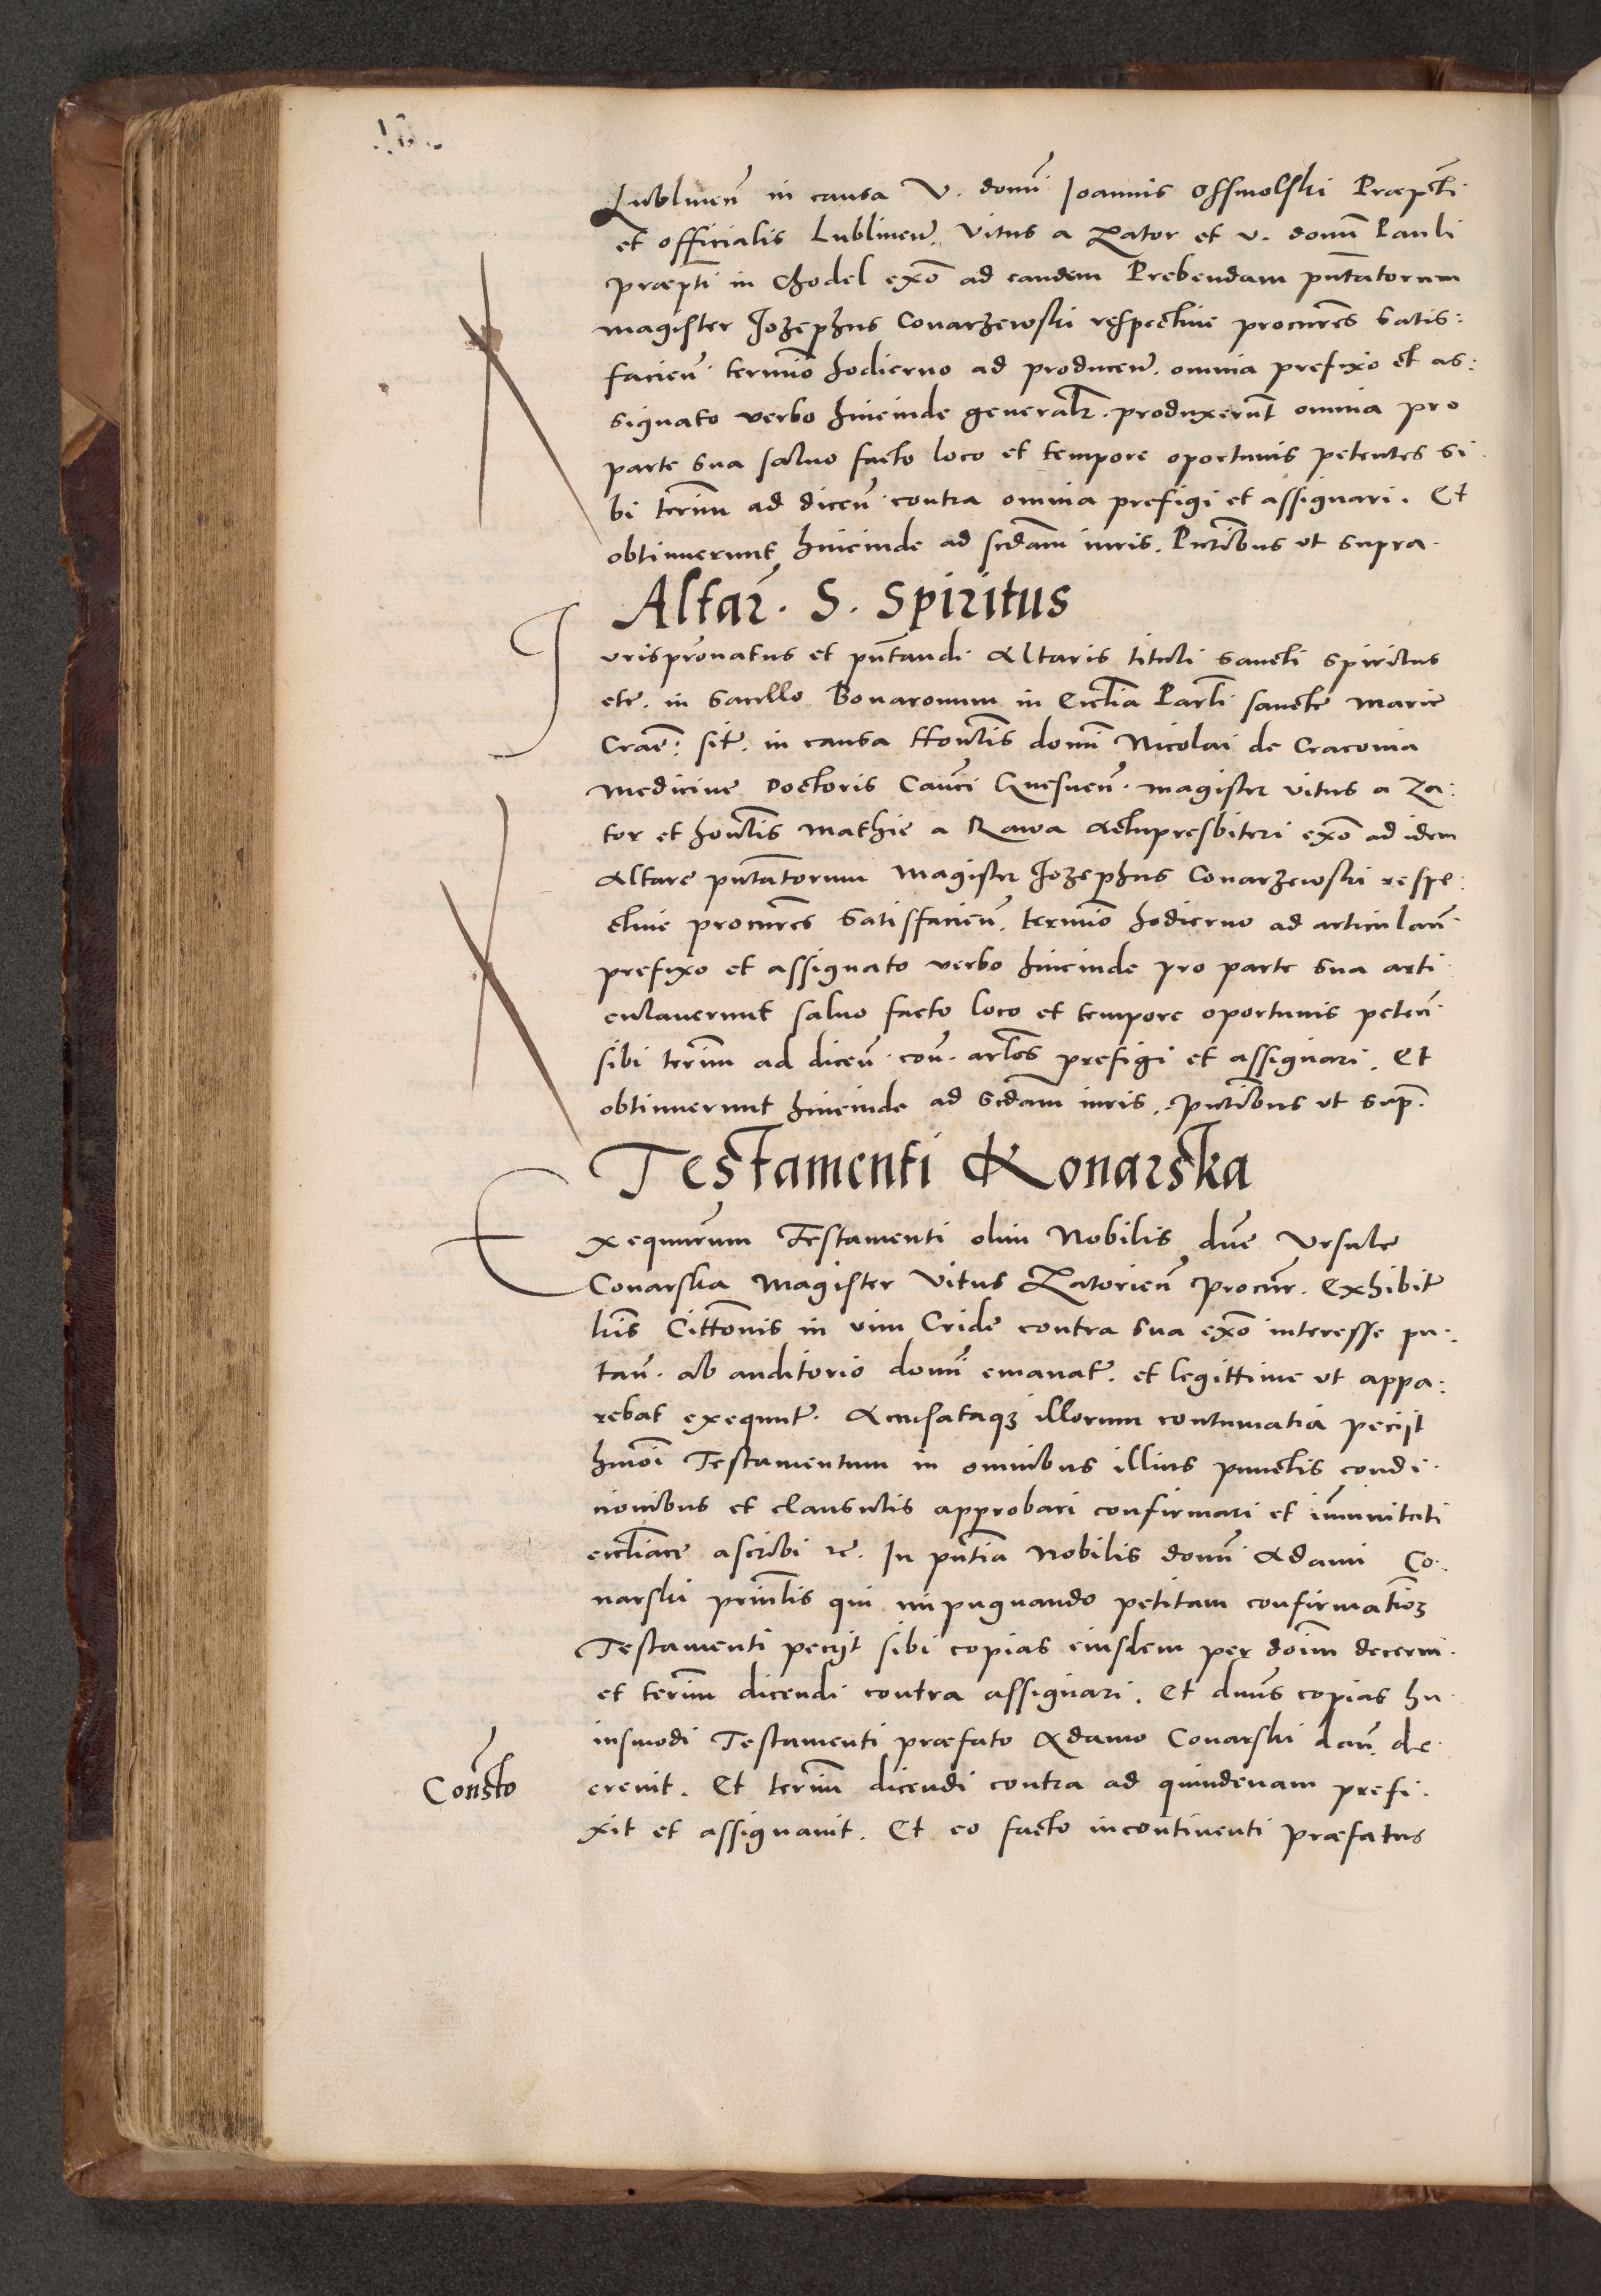 Lublinen̄ in causa V. domī Ioannis Ossmolski Præpt̄i
et officialis Lublinen̄. Vitus a Zator et v. domī Pauli
præpti in Chodel exo͞ ad eandem Prebendam pn̄tatorum
magister Iozephus Conarzewski respective procurēs satis:
facien̄ termīo hodierno ad producen̄. omnia prefixo et as:
signato verbo hincinde generalr̄. produxerūt omnia pro
parte sua salvo facto loco et tempore oportunis petentes si
bi term̄ ad dicen̄ contra omnia prefigi et assignari. Et
obtinuerunt hincinde ad scd̄am iuris. Pn̄tibus ut supra.
Altar̄. S. Spiritus
Iurisprōnatus et pn̄tandi Altaris tituli sancti spiritus
etc. in Sacello Bonaronum in Ecclīa Parlī sancte Marie
Crac̄: sit̄. in causa Honlīs domī Nicolai de Cracovia
Medicine Doctoris Canci Gnesnen̄. magister vitus a Za:
tor et honlīs Mathie a Rawa Actupresbiteri exo͞ ad idem
Altare pn̄tatorum Magister Iozephus Conarzewski respe:
ctive procurēs satisfacien̄. termīo hodierno ad articulan̄
prefixo et assignato verbo hincinde pro parte sua arti
culaverunt salvo facto loco et tempore oportunis peten̄
sibi term̄ ad dicen̄. con̄. artlōs prefigi et assignari. Et
obtinuerunt hincinde ad scd̄am iuris. Pn̄tibus ut sup̄.
Testamenti Konarska
Exequutūm Testamenti olim Nobilis dn̄e Ursule
Conarska Magister Vitus Zatorien̄ procūr. Exhibit̄
lrīs Citton̄is in vim Cride contra sua exo͞ interesse pu:
tan̄. ab auditorio domī emanat̄. et legittime ut appa:
rebat exequut̄. Acusataqȝ illorum contumatia peciit
hmōi Testamentum in omnibus illius punctis condi
tionibus et clausulis approbari confirmari et im̄unitati
ecclīace ascribi ꝛc. In pn̄tia Nobilis domī Adami Co:
narski prin̄lis qui impugnando petitam confirmatīoȝ
Testamenti peciit sibi copias eiusdem per doīm decerni
et term̄ dicendi contra assignari. Et dn̄us copias hu
iusmodi Testamenti præfato Adamo Conarski dan̄. de
Con̄sto
crevit. Et term̄ dicendi contra ad quindenam prefi.
xit et assignavit. Et eo facto incontinenti præfatus